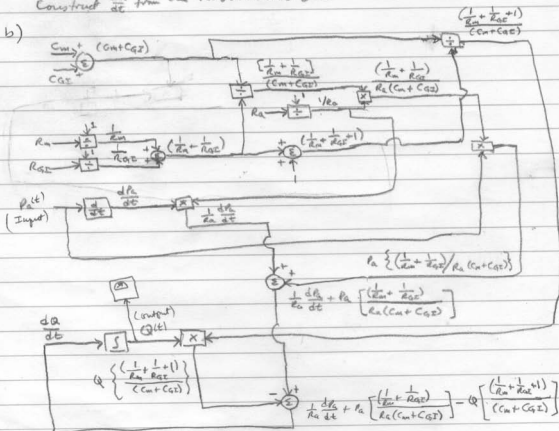 Construct d/dt from the
b)
Cm + (Cm+CGI)
CGI +
(1/Rm + 1/RGI + 1) / (Cm+CGI)
[1/Rm + 1/RGI] / (Cm+CGI)
(1/Rm + 1/RGI) / Ra(Cm+CGI)
÷
÷ 1 1/Ra ×
Ra → ÷
Rm → ÷ 1 1/Rm
RGI → ÷ 1 1/RGI
Σ (1/Rm + 1/RGI) + Σ (1/Rm + 1/RGI + 1)
+ 1
×
Pa(t) d/dt dPa/dt ×
(Input)
1/Ra dPa/dt
Pa {(1/Rm + 1/RGI)/Ra(Cm+CGI)}
+ Σ +
1/Ra dPa/dt + Pa [(1/Rm + 1/RGI) / Ra(Cm+CGI)]
(output)
dQ/dt ∫ Q(t) ×
Q {(1/Rm + 1/RGI + 1) / (Cm+CGI)}
- Σ +
1/Ra dPa/dt + Pa [(1/Rm + 1/RGI) / Ra(Cm+CGI)] - Q [(1/Rm + 1/RGI + 1) / (Cm+CGI)]